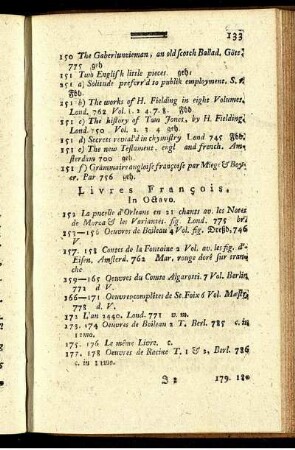 133
150 The Gaberlunzieman, an old scotch Ballad, Gött.
775 geh
151 Two Englifh little pieces. geh:
151 a) Solitude preferr'd to publik employment. S.
Hfbb.
151 b) The works of H. Fielding in eight Volumes,
Lond. 762 Vol. 1. 2 4. 7. 8. Hfbb.
151 c) The history of Tom Jones, by H. Fielding,
Lond. 750 Vol. 1. 3. 4 geh
151 d) Secrets reveal'd in chymistry Lond 745 Hfbb.
151 e) The new Testament. engl and french. Am-
sterdam 700 geh
151 f) Grammaire angloise françoise par Miege & Boy-
er. Par 756 geh
Livres François.
In Octavo.
152 La pucelle d'Orleans en 21 chants av. les Notes
de Morza & les Variantes. fig. Lond. 775 br
153—156 Oeuvres de Boileau 4 Vol. fig. Dresb. 746
d V.
157. 158 Contes de la Fontaine 2 Vol. av. les fig. d'
Eisen. Amsterd. 762 Mar. rouge doré sur tran-
che
159—165 Oeuvres du Comte Algarotti. 7 Vol. Berlin
771 d V.
166—171 Oeuvres complètes de St. Foix 6 Vol. Mastr.
778 d. V.
172 L'an 2440. Lond. 771 v. m.
173. 174 Oeuvres de Boileau 2 T. Berl. 785 c.
in 12mo.
175. 176 Le même Livre. c.
177. 178 Oeuvres de Racine T. 1 & 2, Berl. 786
c. in 12mo.
J 2
179. 180